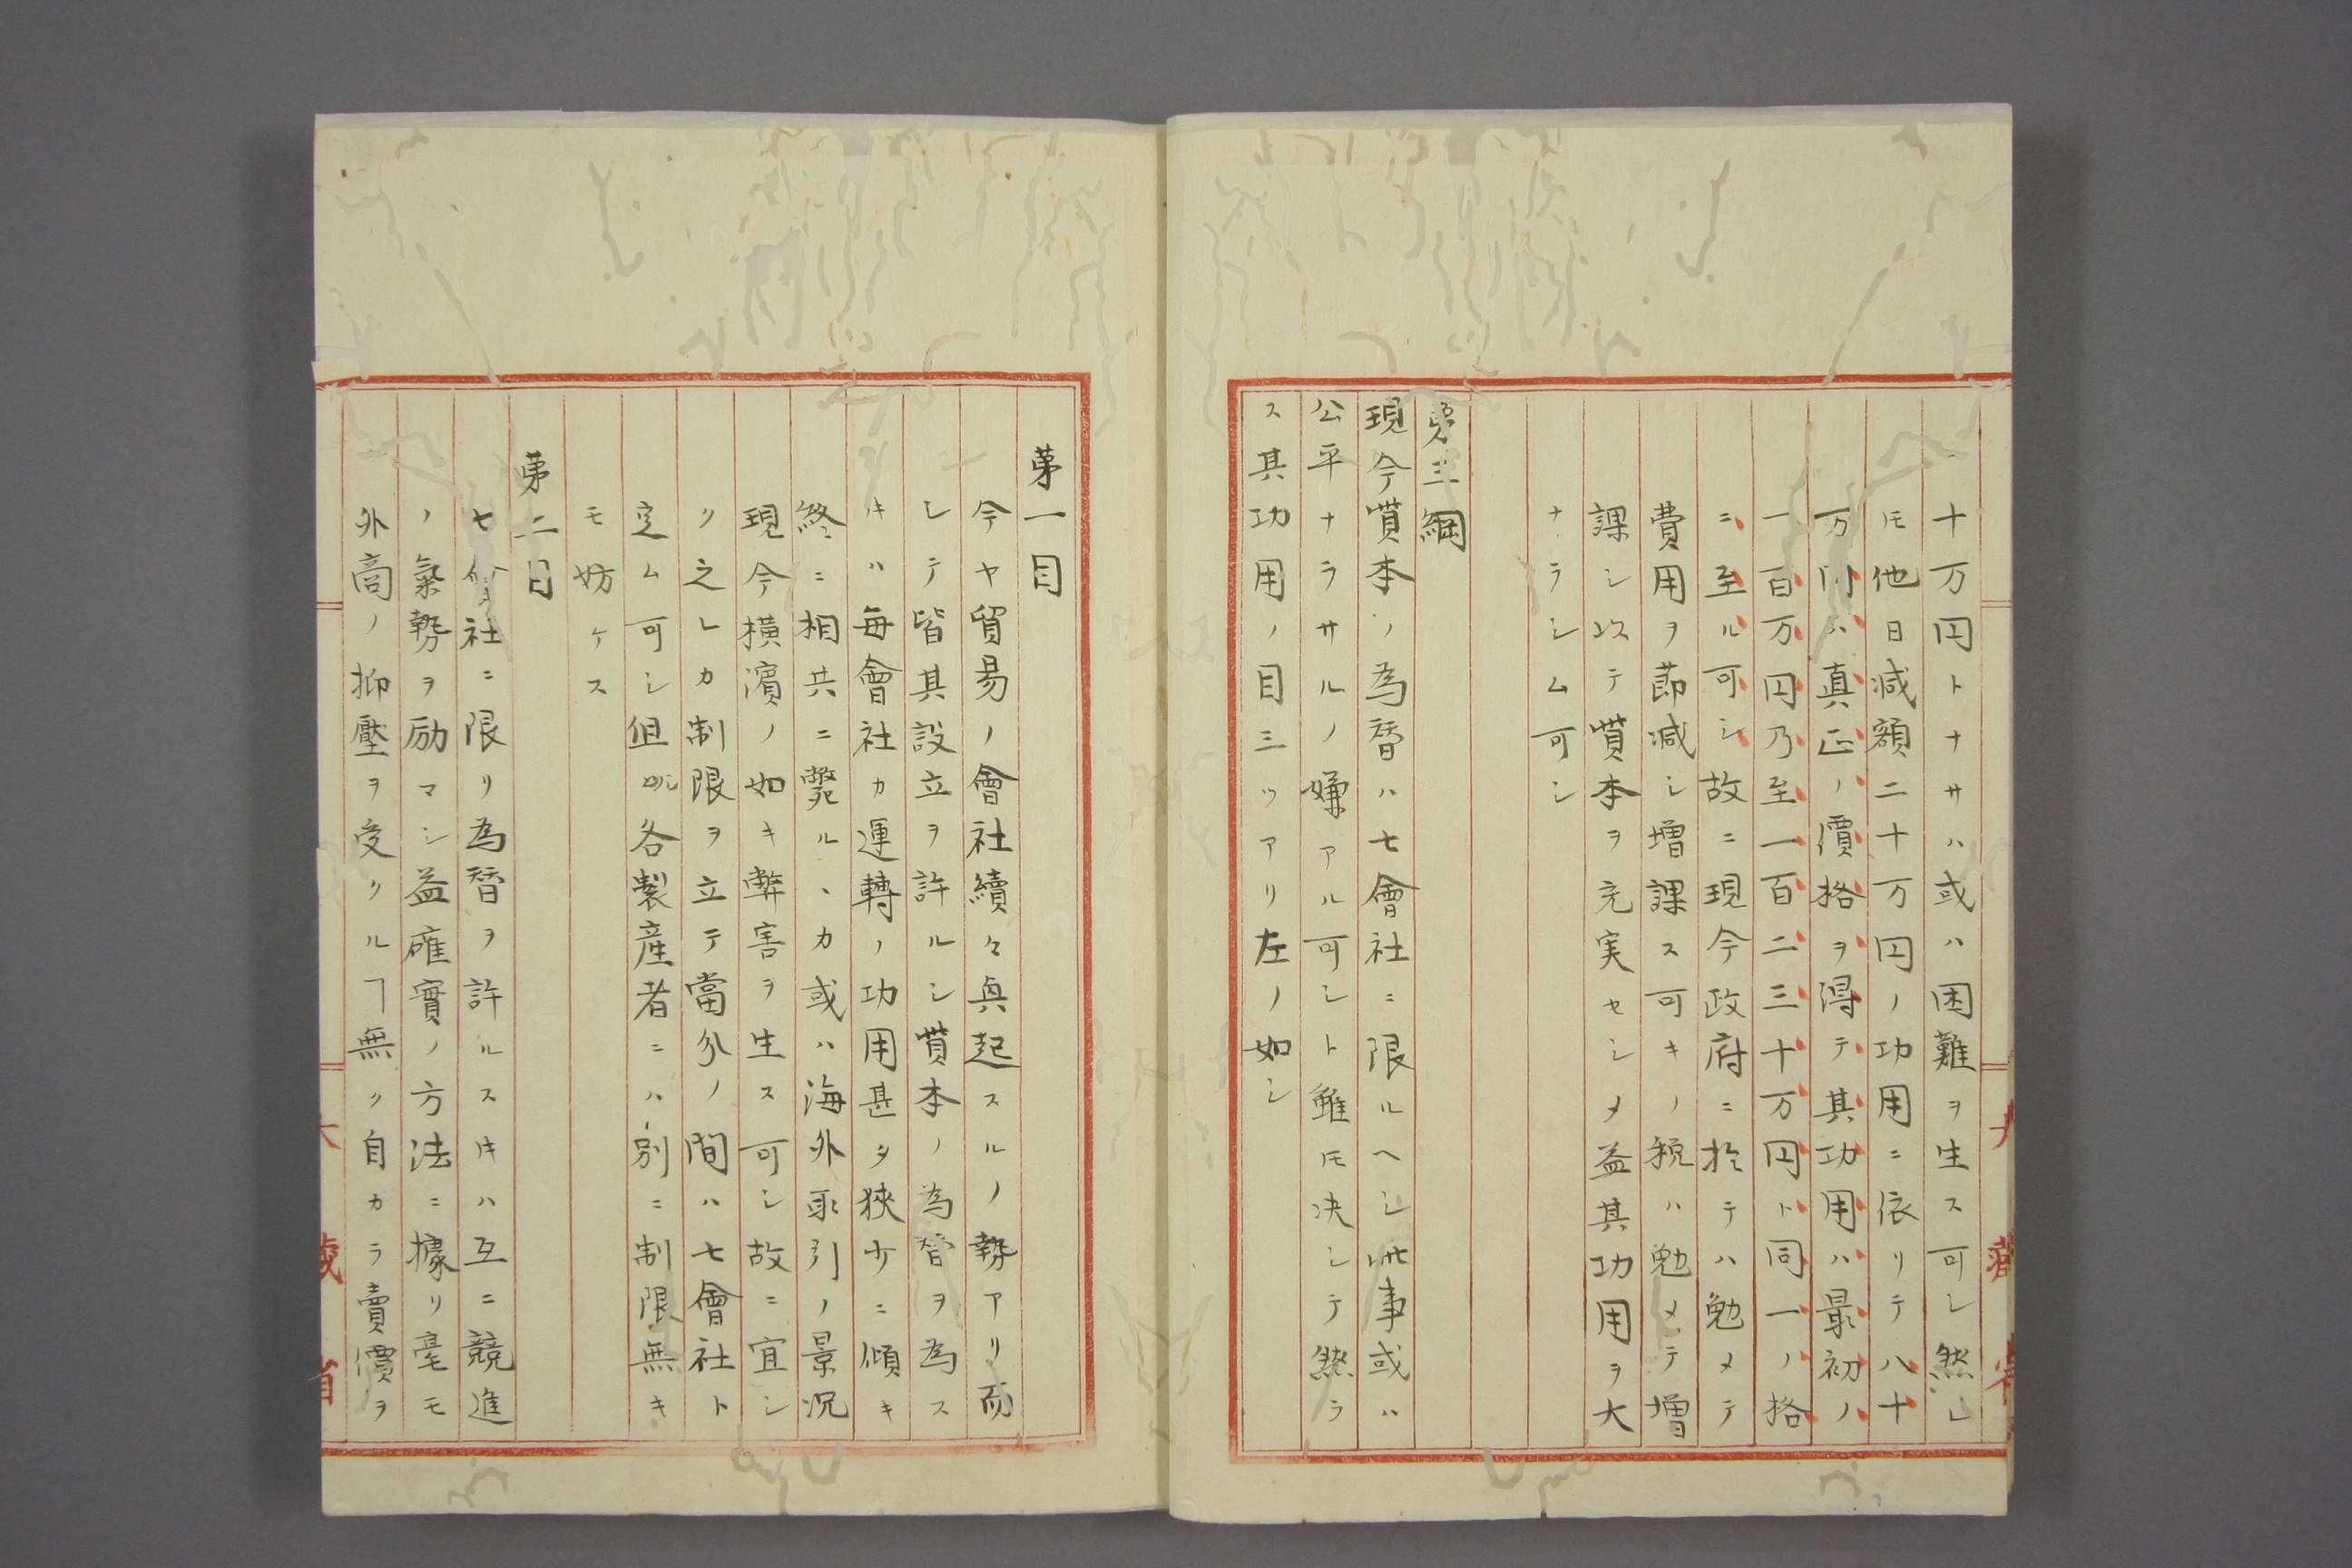 十万円トナサハ或ハ困難ヲ生ス可シ然レ
𪜈他日減額二十万円ノ功用ニ依リテ八十
万円ハ真正ノ價格ヲ得テ其功用ハ最初ノ
一百万円乃至一百二三十万円ト同一ノ格
ニ至ル可シ故ニ現今政府ニ於テハ勉メテ
費用ヲ節減シ増課ス可キノ税ハ勉メテ増
課シ以テ貲本ヲ充実セシメ益其功用ヲ大
ナラシム可シ
第三綱
現今貲本ノ為替ハ七會社ニ限ルヘシ此事或ハ
公平ナラサルノ嫌アル可シト雖𪜈决シテ然ラ
ス其功用ノ目三ツアリ左ノ如シ
大藏省
第一目
今ヤ貿易ノ會社續々興起スルノ勢アリ而
シテ皆其設立ヲ許ルシ貲本ノ為替ヲ為ス
𪜈ハ毎會社カ運轉ノ功用甚タ狹少ニ傾キ
終ニ相共ニ斃ルヽカ或ハ海外取引ノ景况
現今横濱ノ如キ弊害ヲ生ス可シ故ニ宜シ
ク之レカ制限ヲ立テ當分ノ間ハ七會社ト
定ム可シ但シ各製産者ニハ別ニ制限無キ
モ妨ケス
第二目
七會社ニ限リ為替ヲ許ルスキハ互ニ競進
ノ氣勢ヲ励マシ益確實ノ方法ニ據リ毫モ
外商ノ抑壓ヲ受クルヿ無ク自カラ賣價ヲ
大藏省